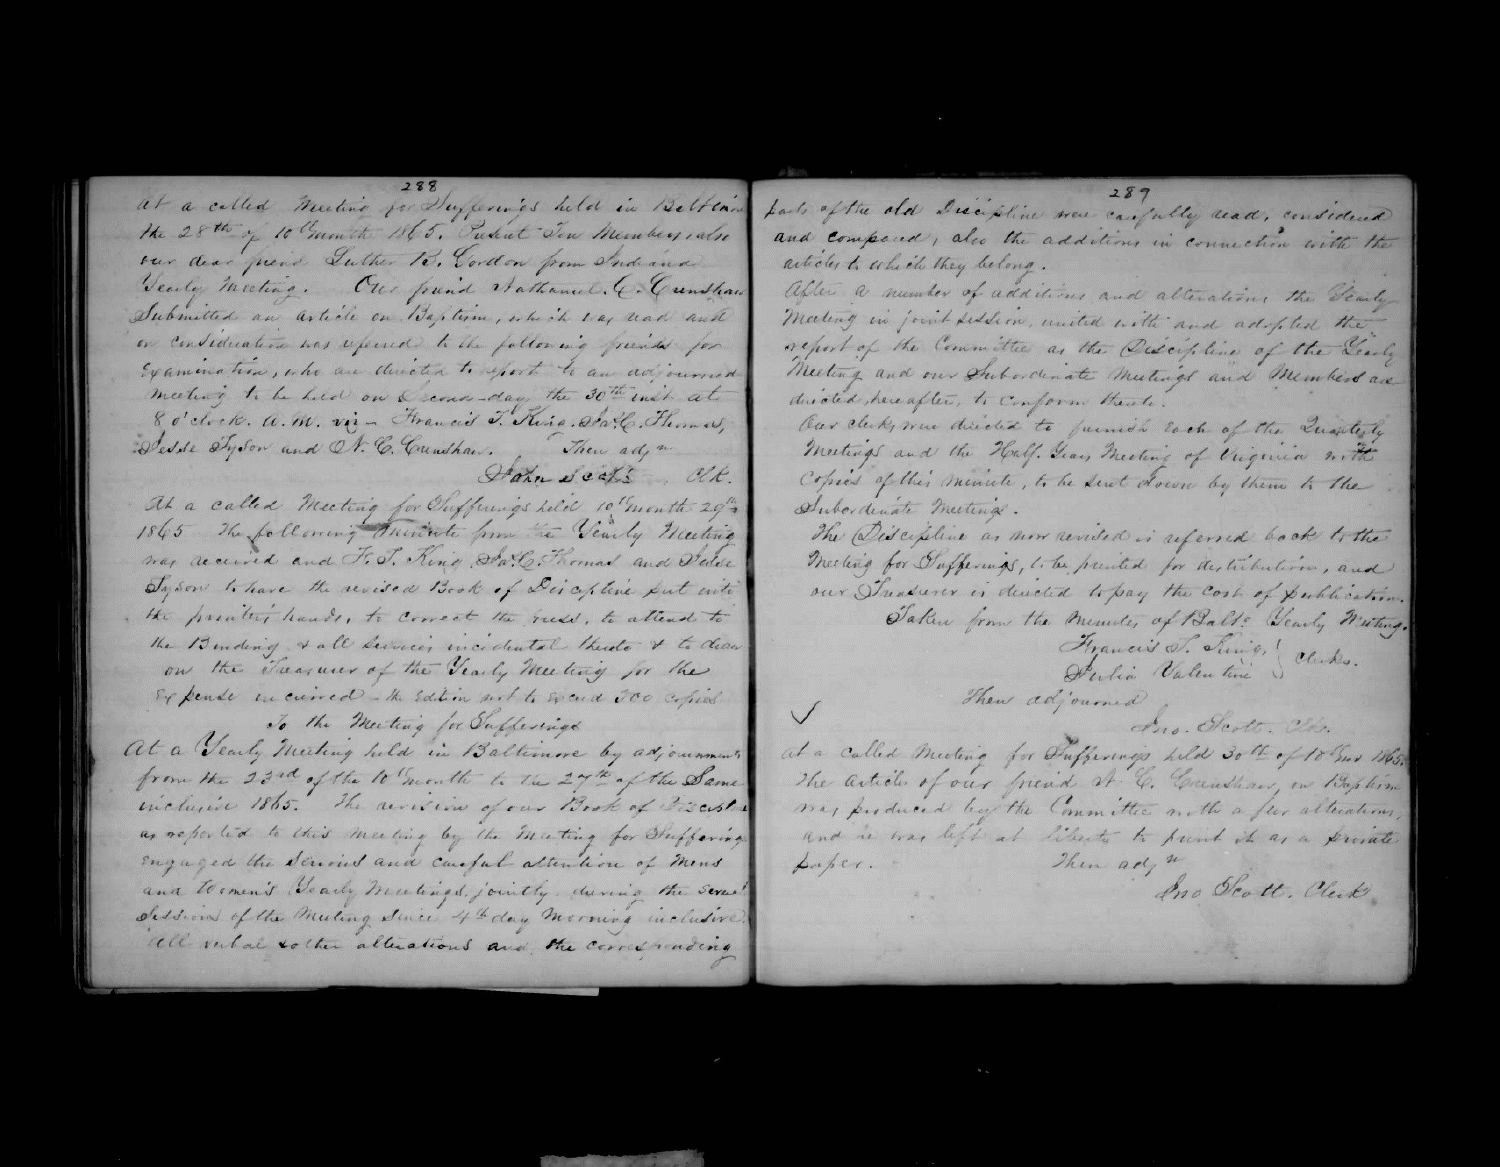 288
At a called Meeting for Sufferings held in Baltimore
the 28th of 10th month 1865. Present Ten Members also
our dear friend Luther B. Gordon from Indiana
Yearly Meeting. Our friend Nathaniel C. Crenshaw
Submitted an article on Baptism, which was read and
on consideration was referred to the following friends for
Examination, who are directed to report to an adjourned
meeting to be held on Second-day the 30th inst. at
8 o'clock. A. M. viz - Francis T. King. Jas. C. Thomas,
Jesse Tyson and N. C. Crenshaw. Then adjn
John Scott Clk.
At a called Meeting for Sufferings held 10th month 29th
1865 The following minute from the Yearly Meeting
was received and F. T. King Jas. C. Thomas and Jesse
Tyson to have the revised Book of Discipline put into
the printers hands, to correct the press, to attend to
the Binding & all services incidental thereto & to draw
on the Treasurer of the Yearly Meeting for the
expense incurred - the edition not to exceed 300 copies
To the Meeting for Sufferings
At a Yearly Meeting held in Baltimore by adjournments
from the 23rd of the 10th month to the 27th of the Same
inclusive 1865. The revision of our Book of Discipline
as reported to this Meeting by the Meeting for Sufferings
engaged the serious and careful attention of Mens
and Women's Yearly Meetings, jointly during the several
Session of the Meeting since 4th day Morning inclusive.
All verbal & other alterations and the corresponding
289
parts of the old Discipline were carefully read, considered
and compared, also the additions in connection with the
articles to which they belong.
After a number of additions and alterations the Yearly
Meeting in joint session, united with and adopted the
report of the Committee as the Discipline of the Yearly
Meeting and our Subordinate Meetings and Members are
directed, hereafter, to conform thereto.
Our clerks were directed to furnish each of the Quarterly
Meetings and the Half. Years Meeting of Virginia with
copies of this minute, to be sent down by them to the
Subordinate Meetings.
The Discipline as now revised is referred back to the
Meeting for Sufferings, to be printed for distribution, and
our Treasurer is directed to pay the cost of publication.
Taken from the Minutes of Balto Yearly Meeting.
Francis T. King,
Julia Valentine } Clerks.
Then adjourned
Jno. Scott. Clk.
At a called Meeting for Sufferings held 30th of 10th mo 1865.
The article of our friend N. C. Crenshaw, on Baptism
was produced by the Committee with a few alterations,
and he was left at liberty to print it as a private
paper. Then adjn
Jno Scott. Clerk